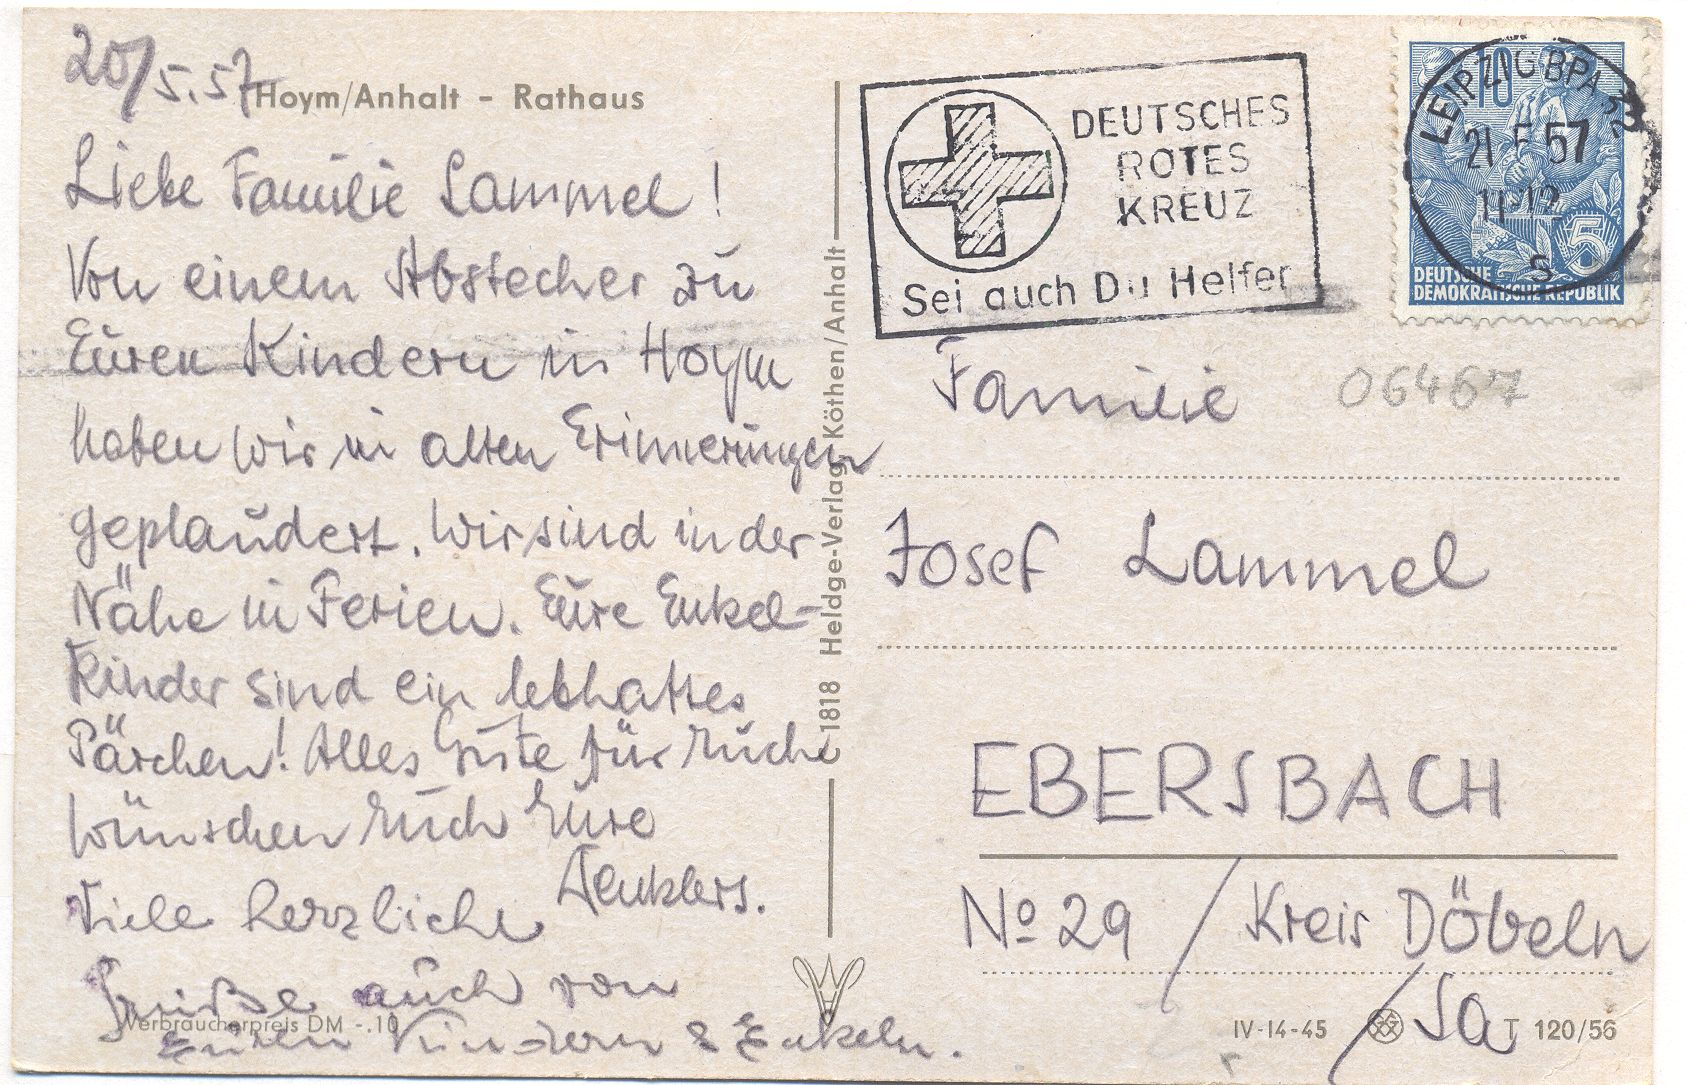 20/5.57
Hoym/Anhalt - Rathaus
Liebe Familie Lammel!
Von einem Abstecher zu
Euren Kindern in Hoym
haben wir in alten Erinnerungen
geplaudert. Wir sind in der
Nähe in Ferien. Eure Enkel-
kinder sind ein lebhaftes
Pärchen! Alles Gute für Euch
wünschen Euch Eure
Viele herzliche
Grüße auch von
Euren Kindern & Enkeln.
Verbraucherpreis DM -.10
C 1818 Heldge-Verlag Köthen/Anhalt
DEUTSCHES
ROTES
KREUZ
Sei auch Du Helfer
LEIPZIG BPA 32
21.5.57
11-12
S
10
5
DEUTSCHE
DEMOKRATISCHE REPUBLIK
06467
Familie
Josef Lammel
EBERSBACH
No 29 / Kreis Döbeln
/Sa
IV-14-45
T 120/56